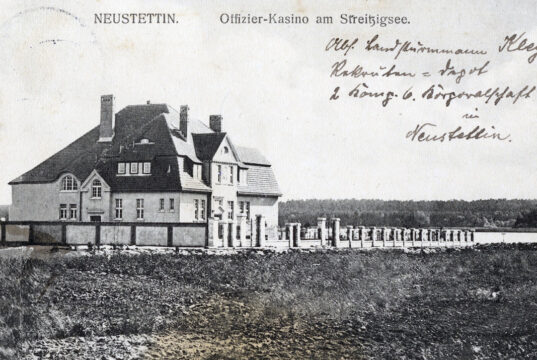 NEUSTETTIN. Offizier-Kasino am Streitzigsee.
Abs. Landsturmmann
Rekruten-depot
2 Komp. 6. Korporalschaft
in
Neustettin.